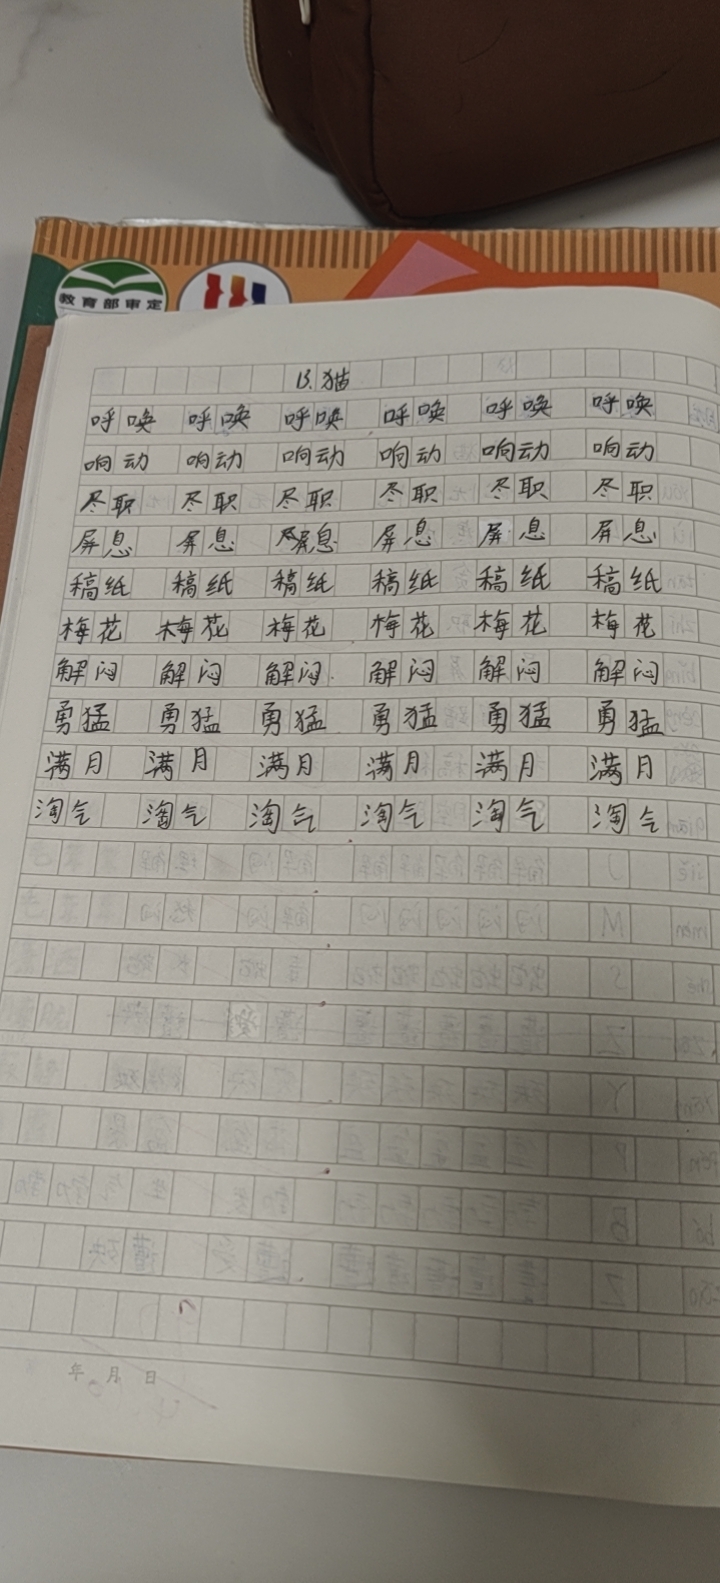 教育部审定
13.猫
呼唤 呼唤 呼唤 呼唤 呼唤 呼唤
响动 响动 响动 响动 响动 响动
尽职 尽职 尽职 尽职 尽职 尽职
屏息 屏息 屏息 屏息 屏息 屏息
稿纸 稿纸 稿纸 稿纸 稿纸 稿纸
梅花 梅花 梅花 梅花 梅花 梅花
解闷 解闷 解闷 解闷 解闷 解闷
勇猛 勇猛 勇猛 勇猛 勇猛 勇猛
满月 满月 满月 满月 满月 满月
淘气 淘气 淘气 淘气 淘气 淘气
年 月 日